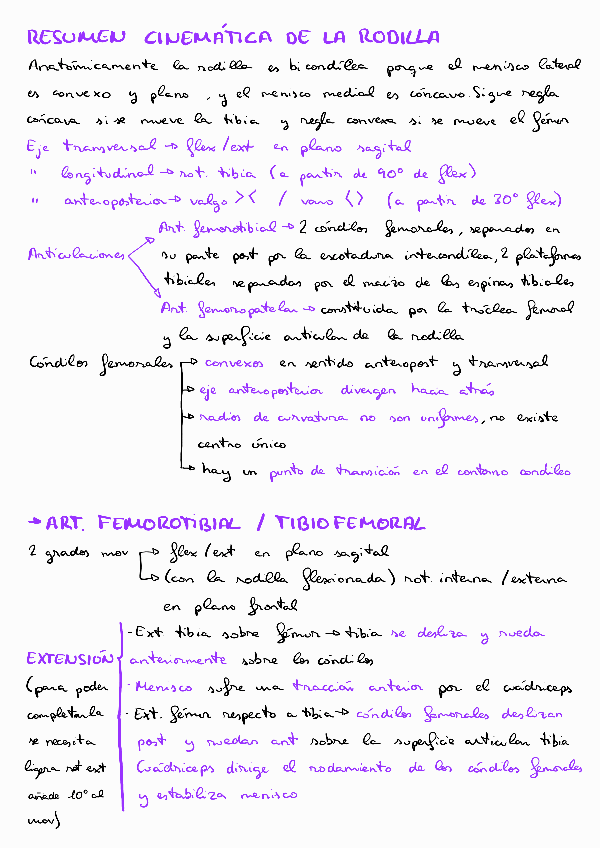 RESUMEN CINEMÁTICA DE LA RODILLA
Anatómicamente la rodilla es bicondílea porque el menisco lateral
es convexo y plano , y el menisco medial es cóncavo. Sigue regla
cóncava si se mueve la tibia y regla convexa si se mueve el fémur
Eje transversal → flex/ext en plano sagital
" longitudinal → rot. tibia (a partir de 90° de flex)
" anteroposterior → valgo >< / varo <> (a partir de 30° flex)
Art. femorotibial → 2 cóndilos femorales, separados en
Articulaciones su parte post por la escotadura intercondílea, 2 plataformas
tibiales separadas por el macizo de las espinas tibiales
Art. femoropatelar → constituida por la tróclea femoral
y la superficie articular de la rodilla
Cóndilos femorales → convexos en sentido anteropost y transversal
→ eje anteroposterior divergen hacia atrás
→ radios de curvatura no son uniformes, no existe
centro único
→ hay un punto de transición en el contorno condíleo
→ ART. FEMOROTIBIAL / TIBIOFEMORAL
2 grados mov → flex/ext en plano sagital
→ (con la rodilla flexionada) rot. interna/externa
en plano frontal
· Ext tibia sobre fémur → tibia se desliza y rueda
EXTENSIÓN anteriormente sobre los cóndilos
(para poder · Menisco sufre una tracción anterior por el cuádriceps
completarla · Ext. fémur respecto a tibia → cóndilos femorales deslizan
se necesita post y ruedan ant sobre la superficie articular tibia
ligera rot ext Cuádriceps dirige el rodamiento de los cóndilos femorales
añade 10° al y estabiliza menisco
mov)